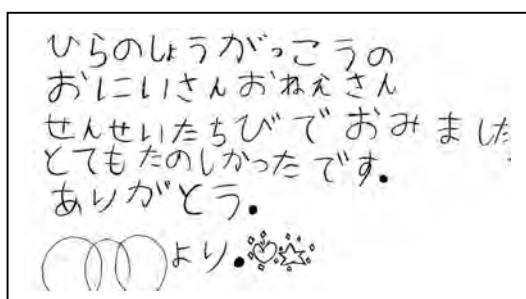 ひらのしょうがっこうの
おにいさんおねえさん
せんせいたちびでおみました
とてもたのしかったです.
ありがとう.
より.